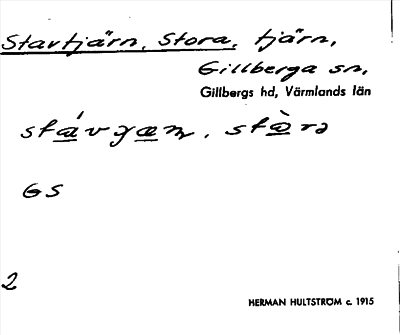 Stavtjärn, Stora, tjärn,
Gillberga sn,
Gillbergs hd, Värmlands län
GS
2
HERMAN HULTSTRÖM c. 1915